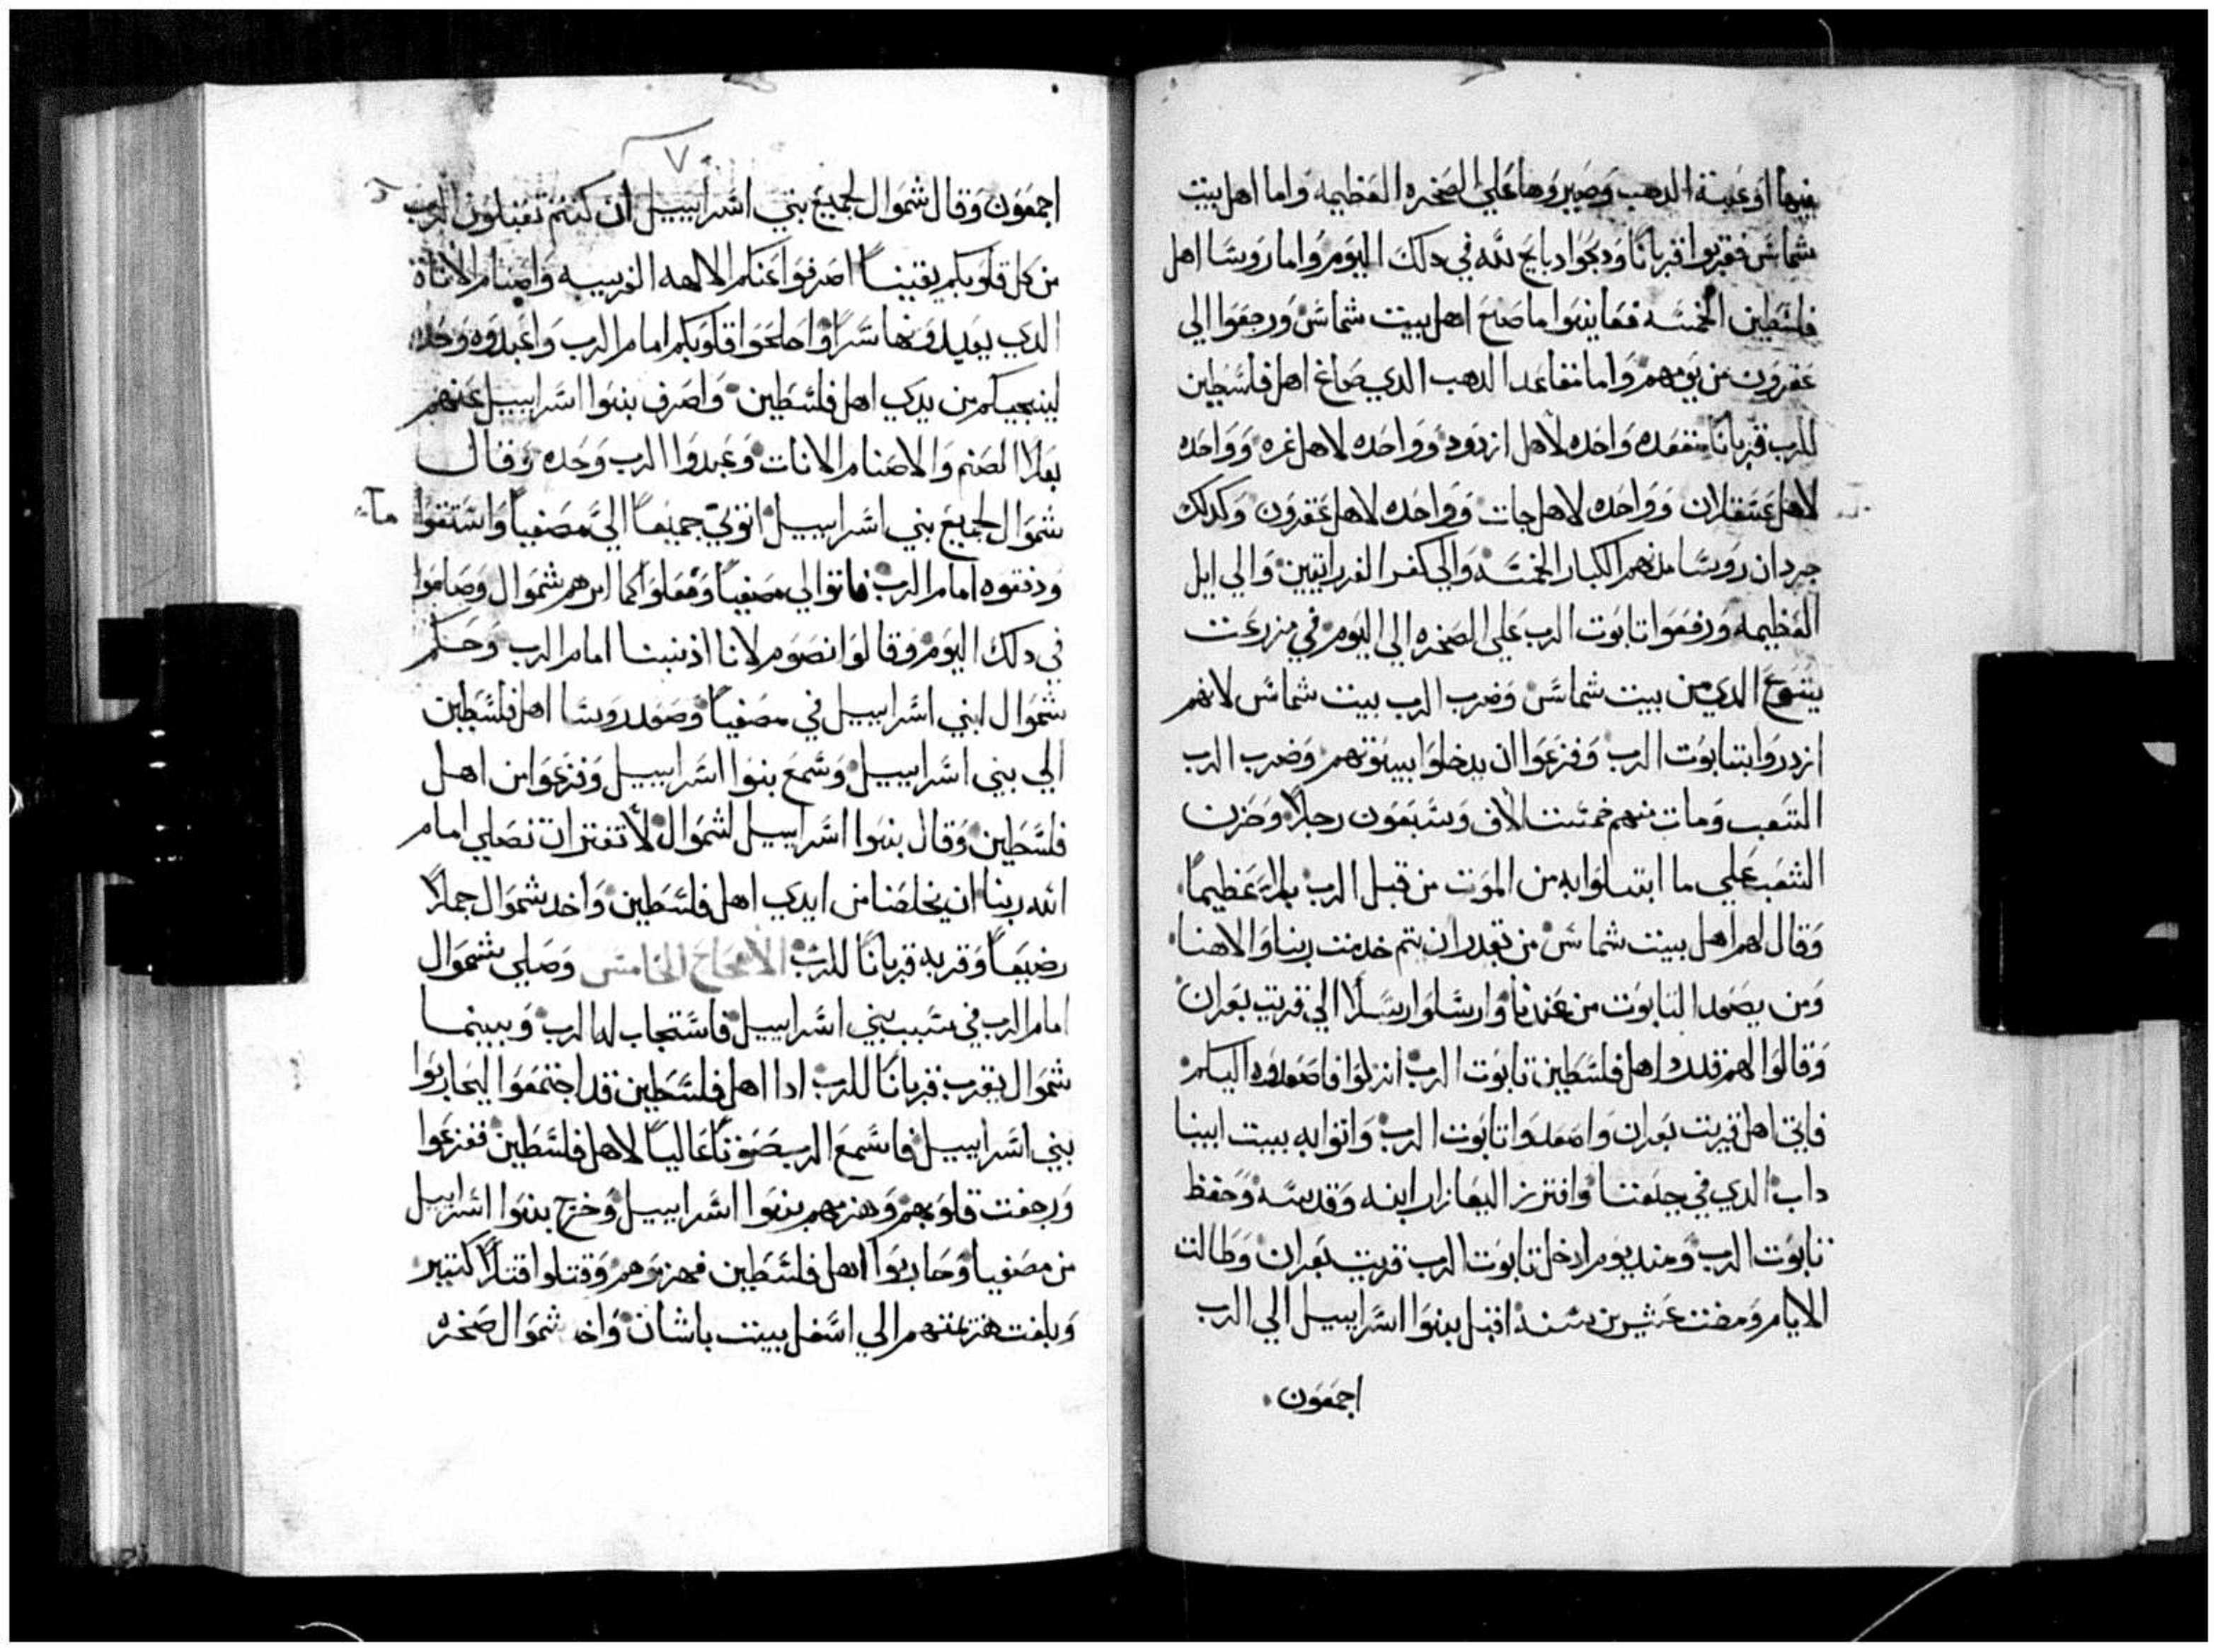 فيها اوعية الدهب وصيروها علي الصخره العظيمه واما اهل بيت
شماس فقربوا قربانا ودبحوا دبايح لله في دلك اليوم واما روسا اهل
فلسطين الخمسه فعاينوا ما صنع اهل بيت شماس ورجعوا الي
عقرون من يومهم واما مقاعد الدهب الدي صاغ اهل فلسطين
للرب قربانا مقعده واحده لاهل ازدود وواحده لاهل غزه وواحده
لاهل عسقلان وواحده لاهل جات وواحده لاهل عقرون وكدلك
جردان روسا مدنهم الكبار الخمسه والي كفر الفراتيين والي ابل
العظيمه ورفعوا تابوت الرب علي الصخره الي اليوم في مزرعت
يشوع الدي من بيت شماس وضرب الرب بيت شماس لانهم
ازدروا بتابوت الرب وفزعوا ان يدخلوا بيوتهم وضرب الرب
الشعب ومات منهم خمست الاف وسبعون رجلا وحزن
الشعب علي ما ابتلوا به من الموت من قبل الرب بلاء عظيما
وقال لهم اهل بيت شماس من يقدر ان يتم خدمت ربنا والاهنا
ومن يصعد التابوت من عندنا وارسلوا رسلا الي قريت بعران
وقالوا لهم قد رد اهل فلسطين تابوت الرب انزلوا فاصعدوه اليكم
فاتي اهل قريت بعران واصعدوا تابوت الرب واتوا به بيت ابينا
داب الدي في جلعتا وافترز اليعازار ابنه وقدسه وحفظ
تابوت الرب ومند يوم ادخل تابوت الرب قريت بعران وطالت
الايام ومضت عشرين سنه اقبل بنوا اسراييل الي الرب
اجمعون
٧
اجمعون وقال شموال لجميع بني اسراييل ان كنتم تقبلون الرب
من كل قلوبكم يقينا اصرفوا عنكم الالهه الغريبه واصنام الاناة
الدي يعبدونها سرا واصلحوا قلوبكم امام الرب واعبدوه وحده
لينجيكم من يدي اهل فلسطين واصرف بنوا اسراييل عنهم
بعلا الصنم والاصنام الانات وعبدوا الرب وحده وقال
شموال لجميع بني اسراييل اتوني جميعا الي مصفيا واستقوا
ماء
ودفقوه امام الرب فاتوا الي مصفيا وفعلوا كما امرهم شموال وصاموا
في دلك اليوم وقالوا نصوم لاننا اذنبنا امام الرب وحكم
شموال لبني اسراييل في مصفيا وصعد روسا اهل فلسطين
الي بني اسراييل وسمع بنوا اسراييل وفزعوا من اهل
فلسطين وقال بنوا اسراييل لشموال لا تفتر ان تصلي امام
الله ربنا ان يخلصنا من ايدي اهل فلسطين واخد شموال حملا
رضيعا وقربه قربانا للرب الاصحاح الخامس وصلي شموال
امام الرب في سبب بني اسراييل فاستجاب له الرب وبينما
شموال يقرب قربانا للرب ادا اهل فلسطين قد اجتمعوا ليحاربوا
بني اسراييل فاسمع الرب صوتا عاليا لاهل فلسطين ففزعوا
ورجفت قلوبهم وهزمهم بنوا اسراييل وخرج بنوا اسراييل
من مصفيا وحاربوا اهل فلسطين فهزموهم وقتلوا قتلا كتير
وبلغت هزيمتهم الي اسفل بيت باشان واخد شموال صخره